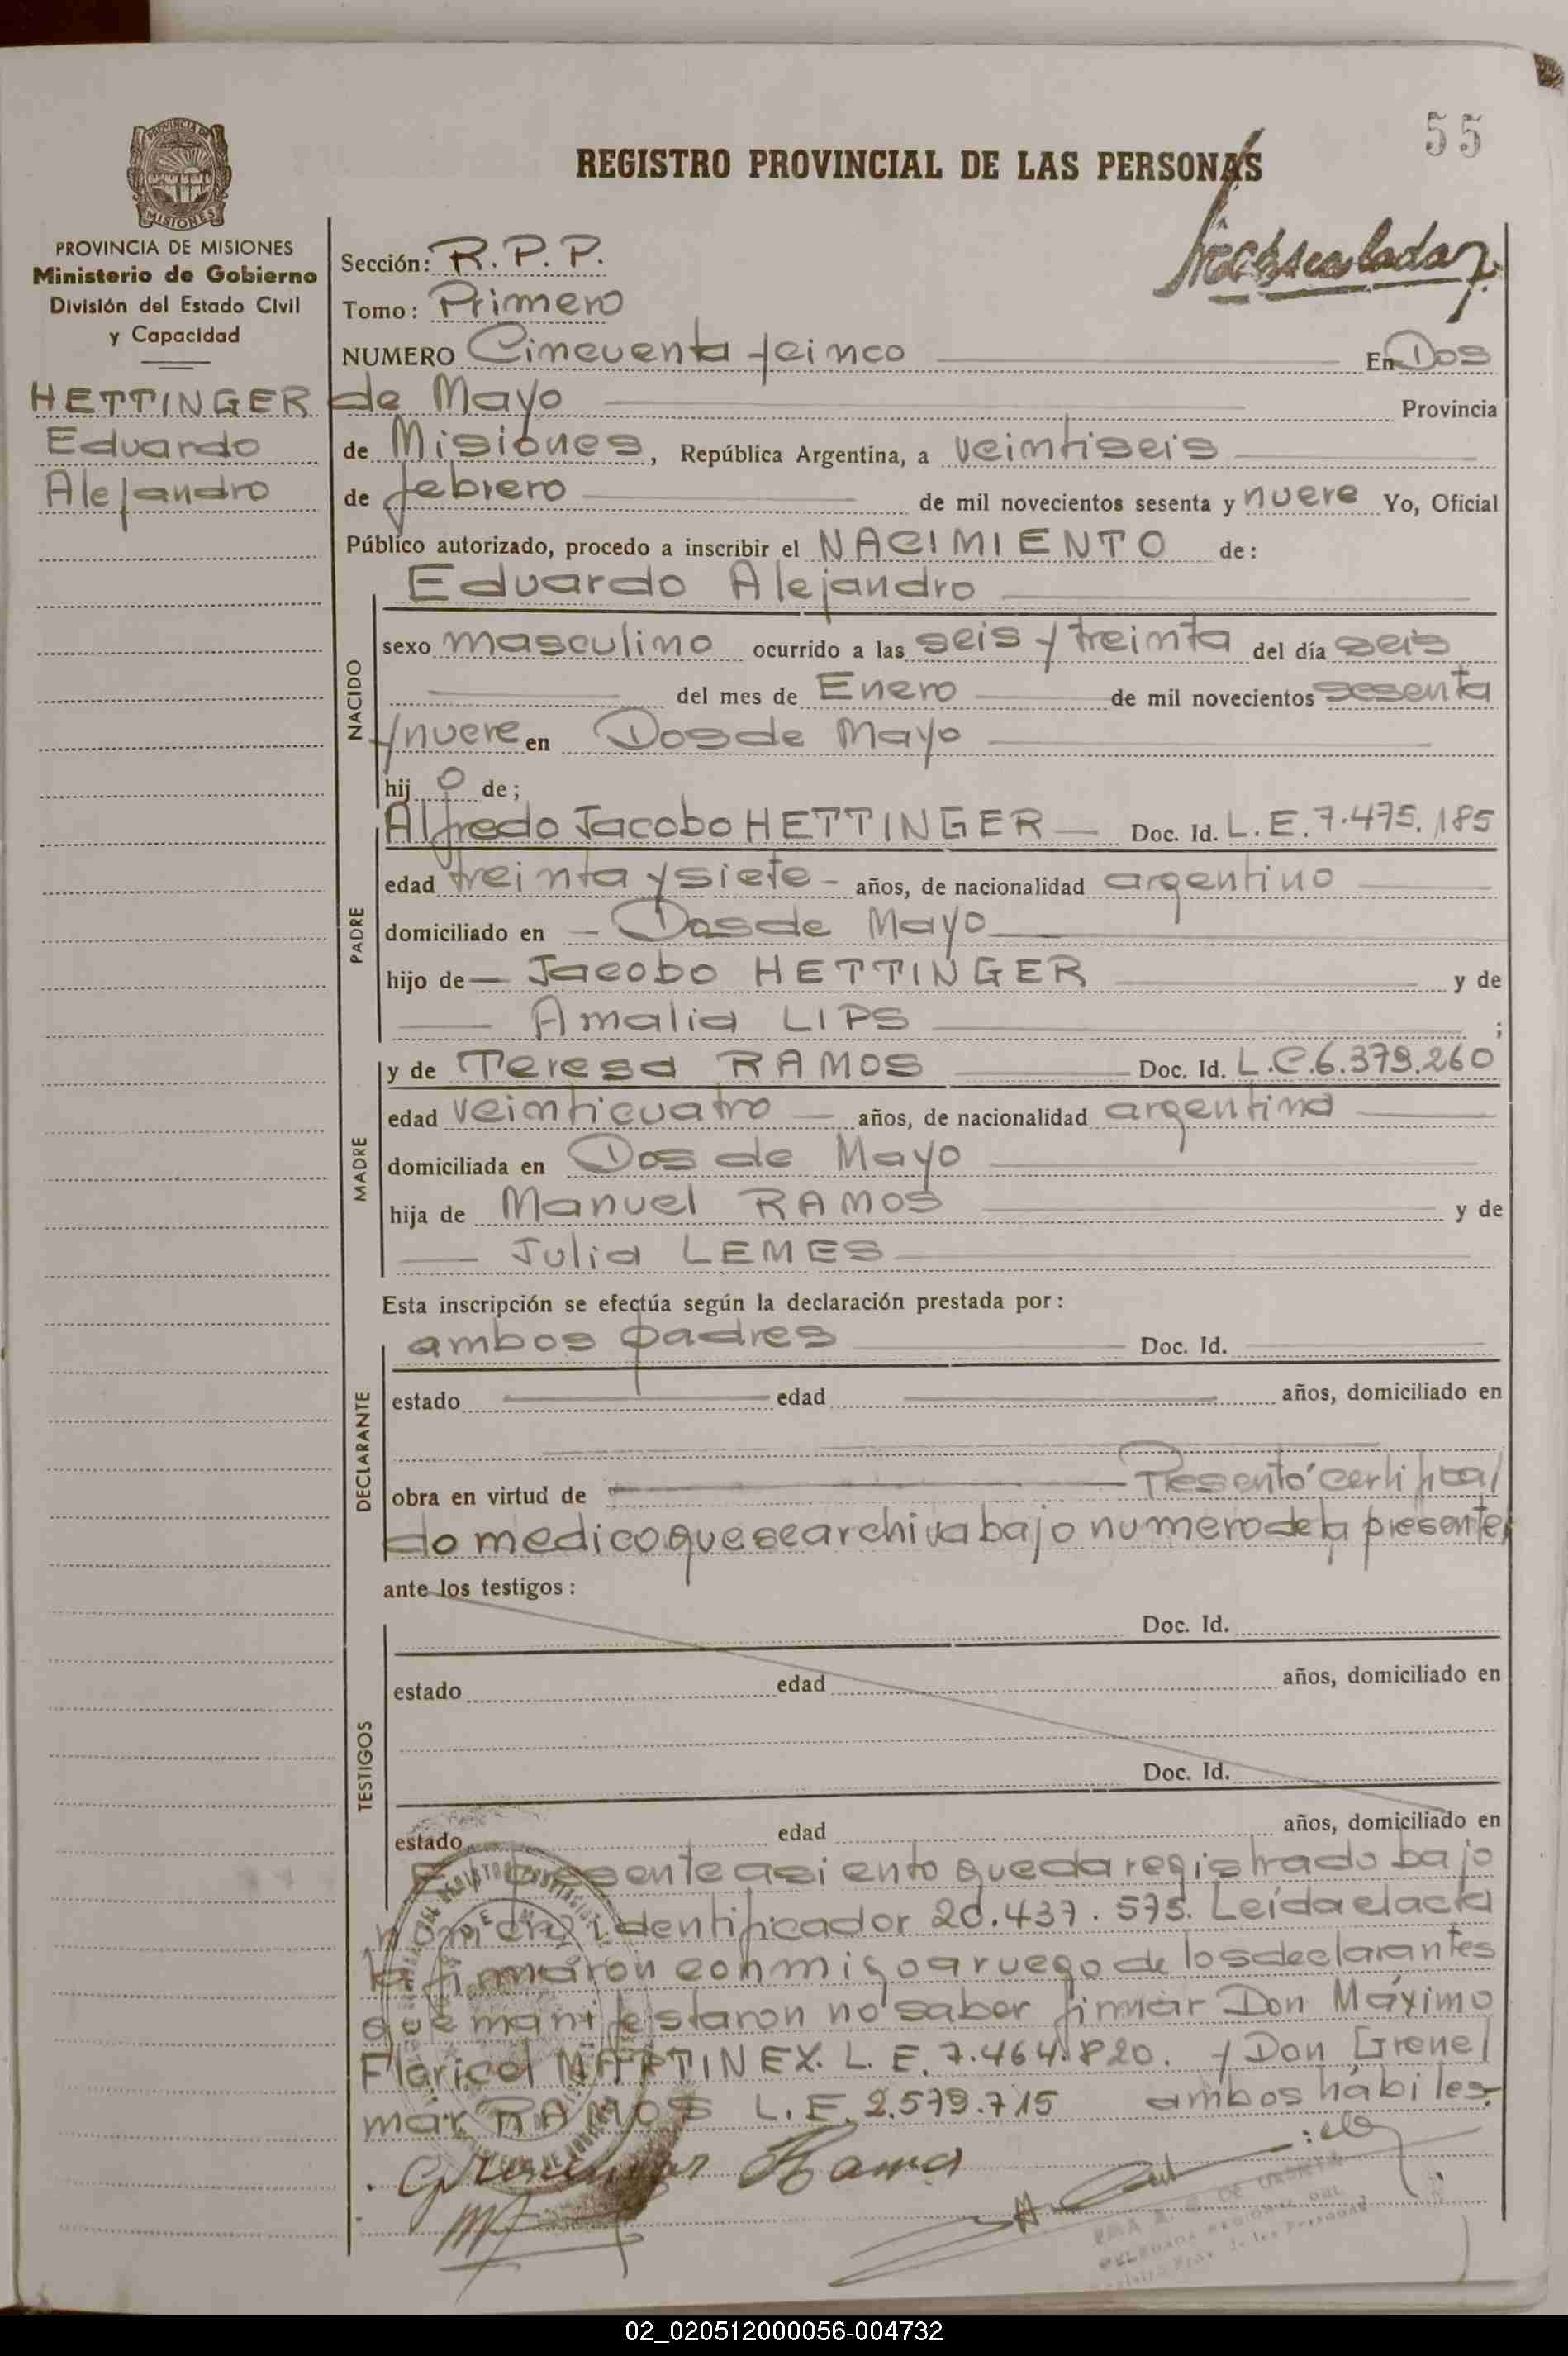 55
REGISTRO PROVINCIAL DE LAS PERSONAS
PROVINCIA DE
MISIONES
PROVINCIA DE MISIONES
Ministerio de Gobierno
División del Estado Civil
y Capacidad
HETTINGER
Eduardo
Alejandro
Sección: R.P.P.
Tomo: Primero
NUMERO Cincuenta y cinco En Dos
de Mayo Provincia
de Misiones, República Argentina, a veintiseis
de febrero de mil novecientos sesenta y nueve Yo, Oficial
Público autorizado, procedo a inscribir el NACIMIENTO de:
Eduardo Alejandro
NACIDO
sexo masculino ocurrido a las seis y treinta del día seis
del mes de Enero de mil novecientos sesenta
y nueve en Dos de Mayo
hij o de;
PADRE
Alfredo Jacobo HETTINGER Doc. Id. L.E. 7.475.185
edad treinta y siete años, de nacionalidad argentino
domiciliado en Dos de Mayo
hijo de Jacobo HETTINGER y de
Amalia LIPS ;
MADRE
y de Teresa RAMOS Doc. Id. L.C. 6.379.260
edad veinticuatro años, de nacionalidad argentina
domiciliada en Dos de Mayo
hija de Manuel RAMOS y de
Julia LEMES
Esta inscripción se efectúa según la declaración prestada por:
DECLARANTE
ambos padres Doc. Id.
estado edad años, domiciliado en
obra en virtud de Presentó certifica/
do medico que se archiva bajo numero de la presente
ante los testigos:
TESTIGOS
Doc. Id.
estado edad años, domiciliado en
Doc. Id.
estado edad años, domiciliado en
El presente asiento queda registrado bajo
número identificador 20.437.575. Leída el acta
la firmaron conmigo a ruego de los declarantes
que manifestaron no saber firmar Don Máximo
Floricel MARTINEX. L.E. 7.464.820. y Don Grenel/
mar RAMOS L.E. 2.579.715 ambos hábiles
02_020512000056-004732